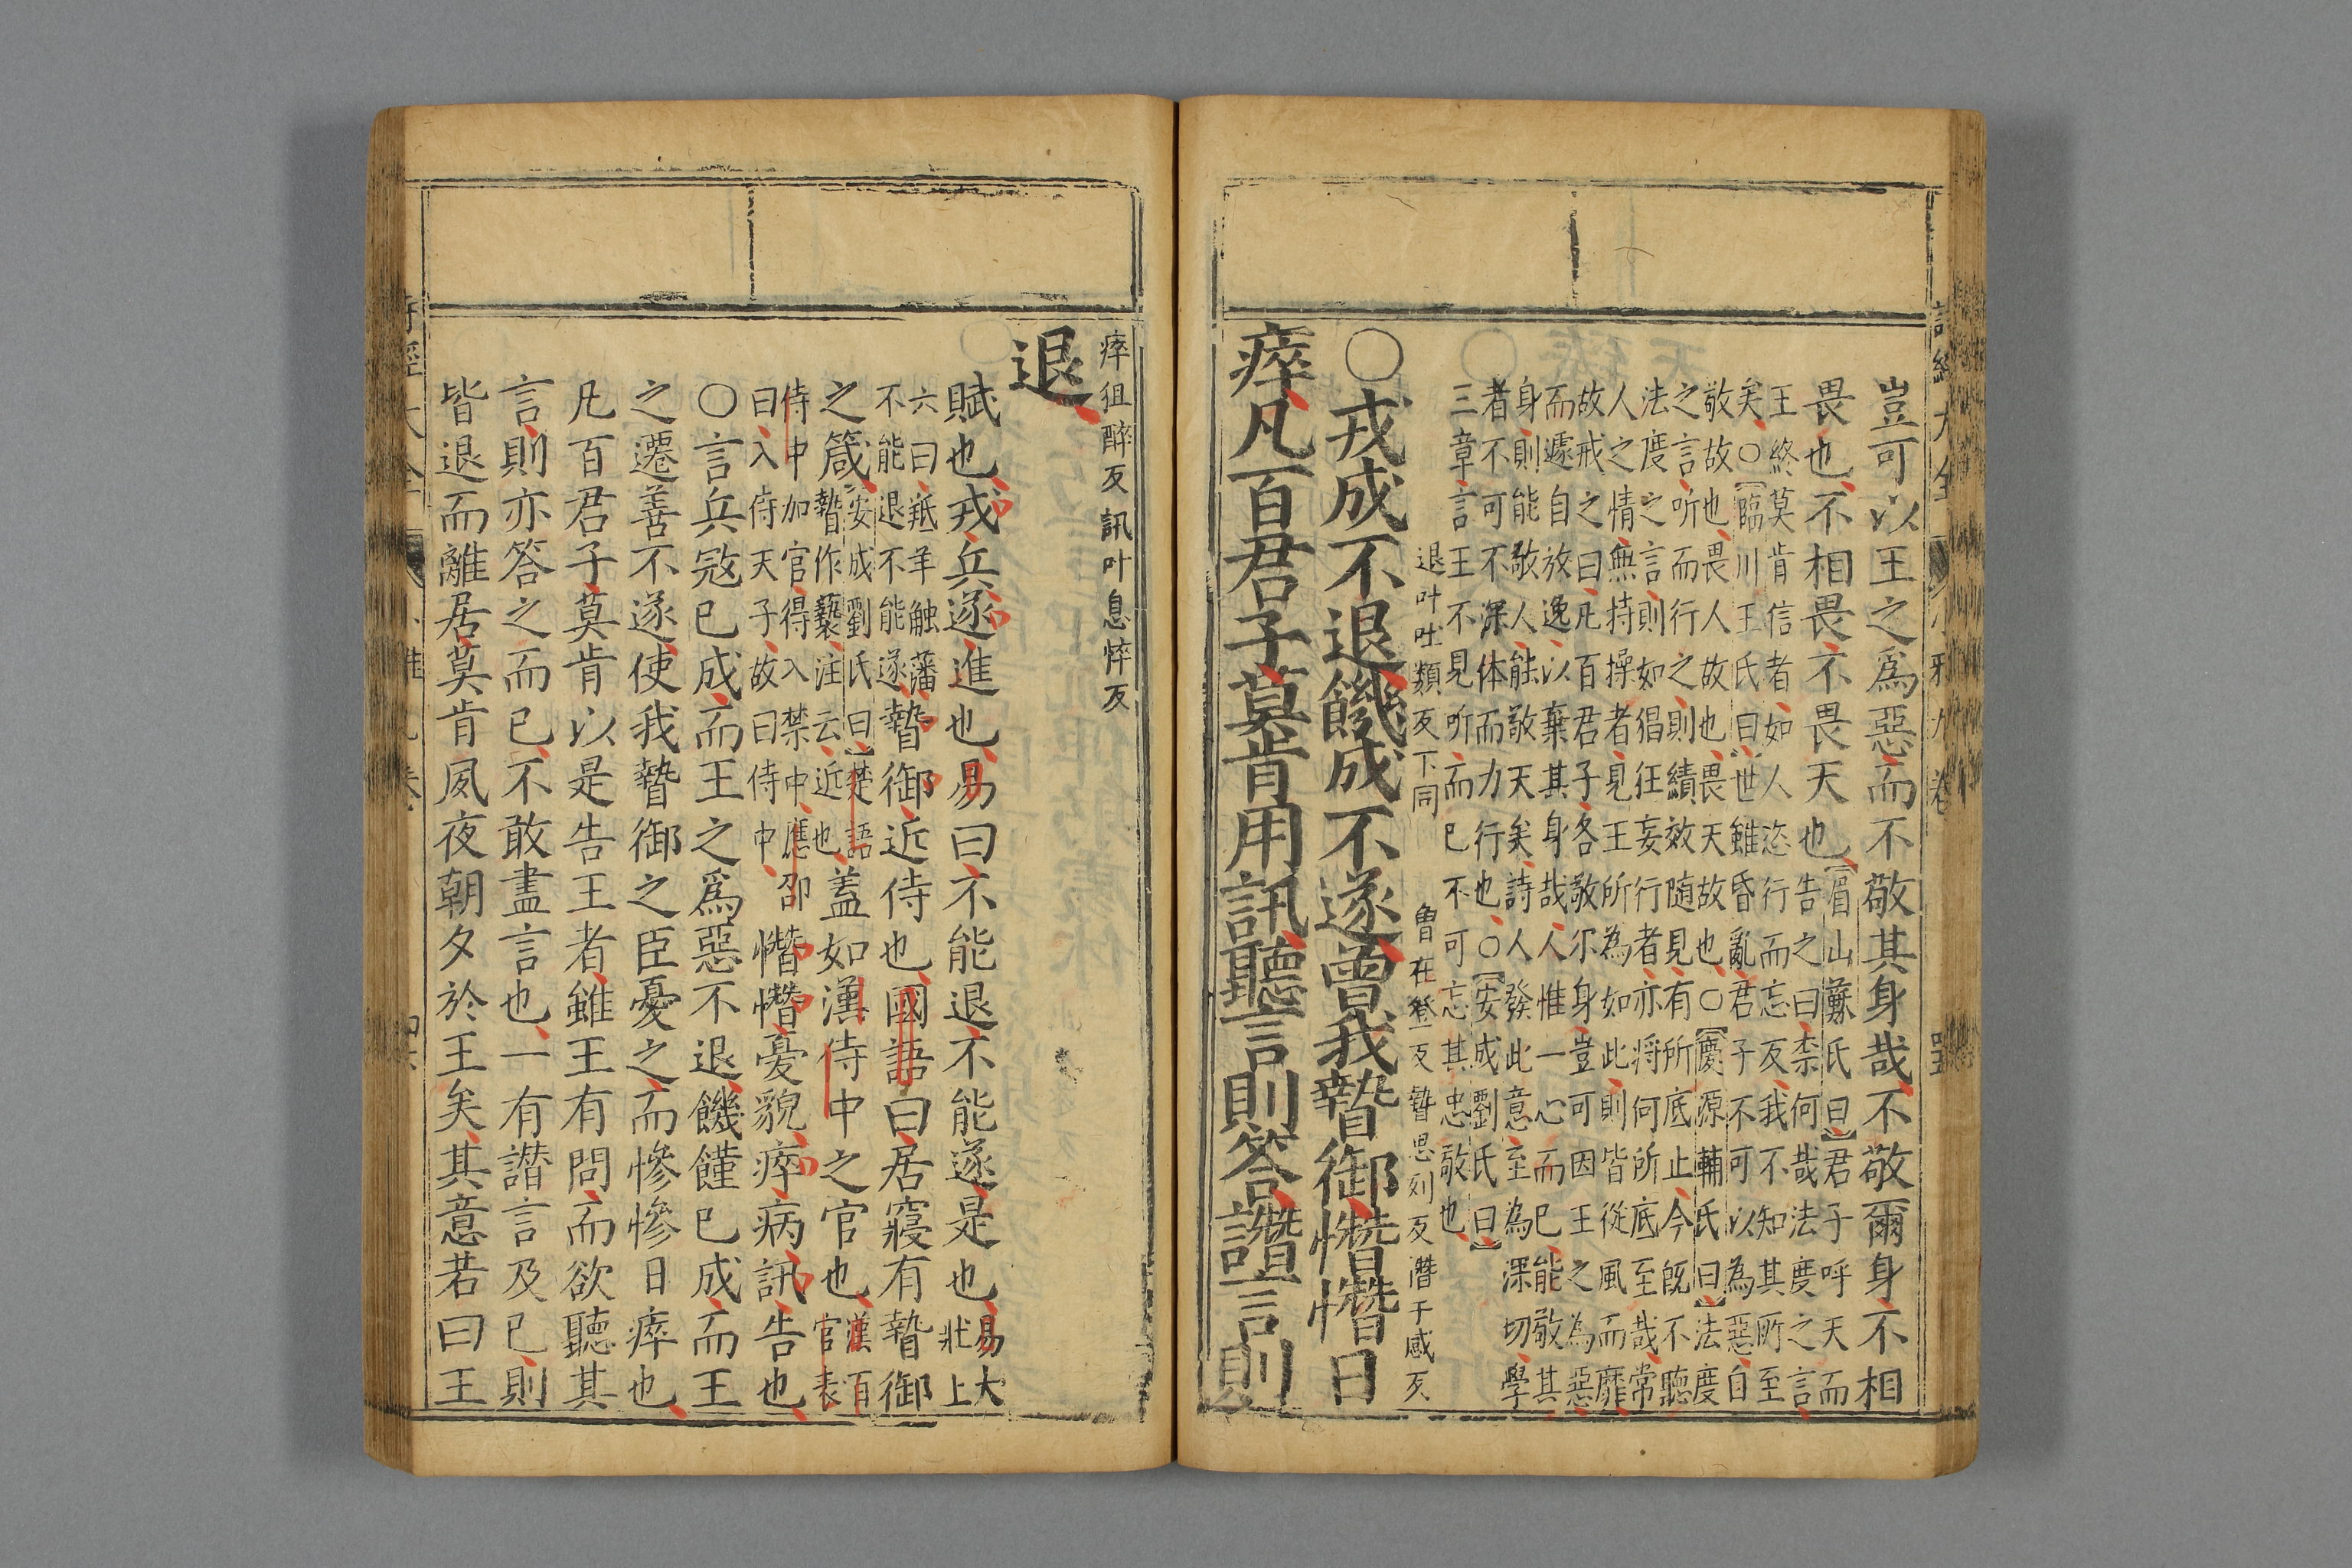 豈可以王之爲惡而不敬其身哉不敬爾身不相
畏也不相畏不畏天也【眉山蘇氏曰】君子呼天而
告之曰柰何哉法度之言
王終莫肯信者如人恣行而忘反我不知其所至
矣○【臨川王氏曰】世雖昏亂君子不可以為惡自
敬故也畏人故也畏天故也○【慶源輔氏曰】法度
之言听而行之則績效随見有所底止今旣不聽
法度之言則如倡狂妄行者亦将何所底至哉常
人之情無持操者見王所為如此則皆從風而靡
故戒之曰凡百君子各敬尔身豈可因王之為惡
而遽自放逸以棄其身哉人惟一心而已能敬其
身則能敬人能敬天矣詩人發此意至為深切學
者不可不深体而力行也○【安成劉氏曰】
三章言王不見听而已不可忘其忠敬也
○戎成不退饑成不遂曾我暬御憯憯日
退叶吐類反下同
曾在登反暬思列反憯千感反
瘁凡百君子莫肯用訊聽言則答譖言則
瘁徂醉反訊叶息悴反
退
賦也戎兵遂進也易曰不能退不能遂是也易大
壯上
六曰羝羊觸藩
不能退不能遂暬御近侍也國語曰居寢有暬御
之箴【安成劉氏曰】楚語
暬作褻注云近也蓋如漢侍中之官也漢百
官表
侍中加官得入禁中應卲
曰入侍天子故曰侍中憯憯憂貌瘁病訊告也
○言兵冦已成而王之爲惡不退饑饉已成而王
之遷善不遂使我暬御之臣憂之而慘慘日瘁也
凡百君子莫肯以是告王者雖王有問而欲聽其
言則亦答之而已不敢盡言也一有譖言及已則
皆退而離居莫肯夙夜朝夕於王矣其意若曰王